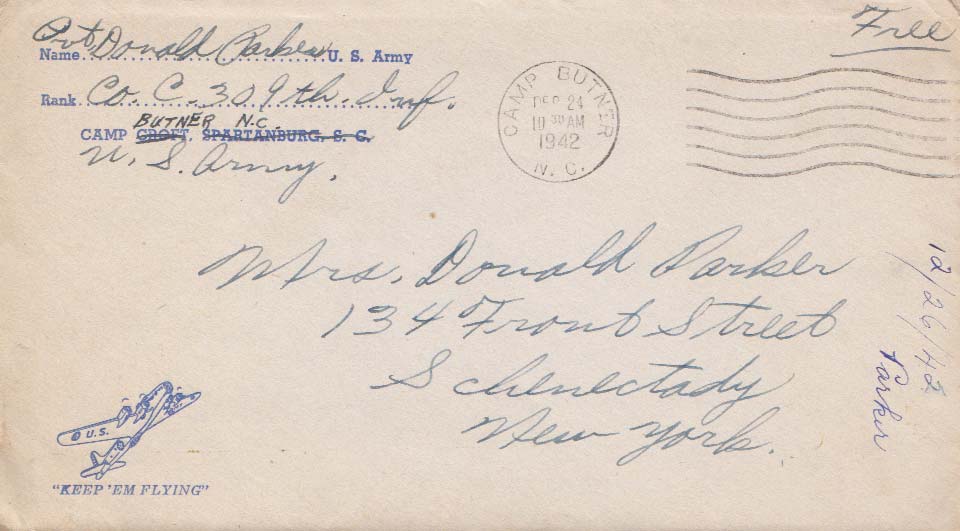 Free
Name Pvt. Donald Parker U. S. Army
Rank Co. C. 309th. Inf.
BUTNER N.C.
CAMP CROFT, SPARTANBURG, S. C.
U. S. Army.
CAMP BUTNER
DEC 24
10 30 AM
1942
N. C.
Mrs. Donald Parker
134 Front Street
Schenectady
New York.
12/26/42
Parker
U.S.
"KEEP 'EM FLYING"